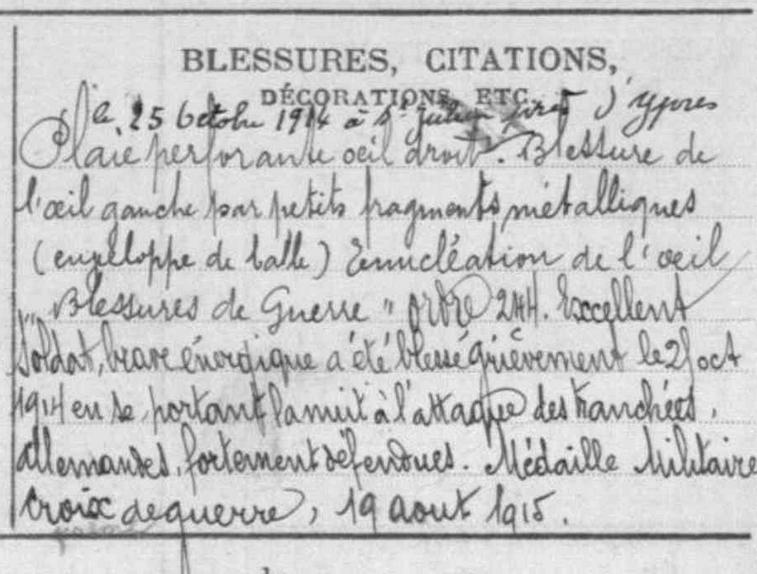 BLESSURES, CITATIONS,
DÉCORATIONS, ETC.
le 25 Octobre 1914 à St Julien près d'Ypres
Plaie perforante oeil droit. Blessure de
l'œil gauche par petits fragments métalliques
(envelloppe de balle) Enucléation de l'oeil
"Blessures de Guerre" Ordre 244. Excellent
Soldat, brave énergique a été blessé grièvement le 25 oct
1914 en se portant la nuit à l'attaque des tranchées,
allemandes, fortement défendues. Médaille Militaire
Croix de guerre, 19 aout 1915.